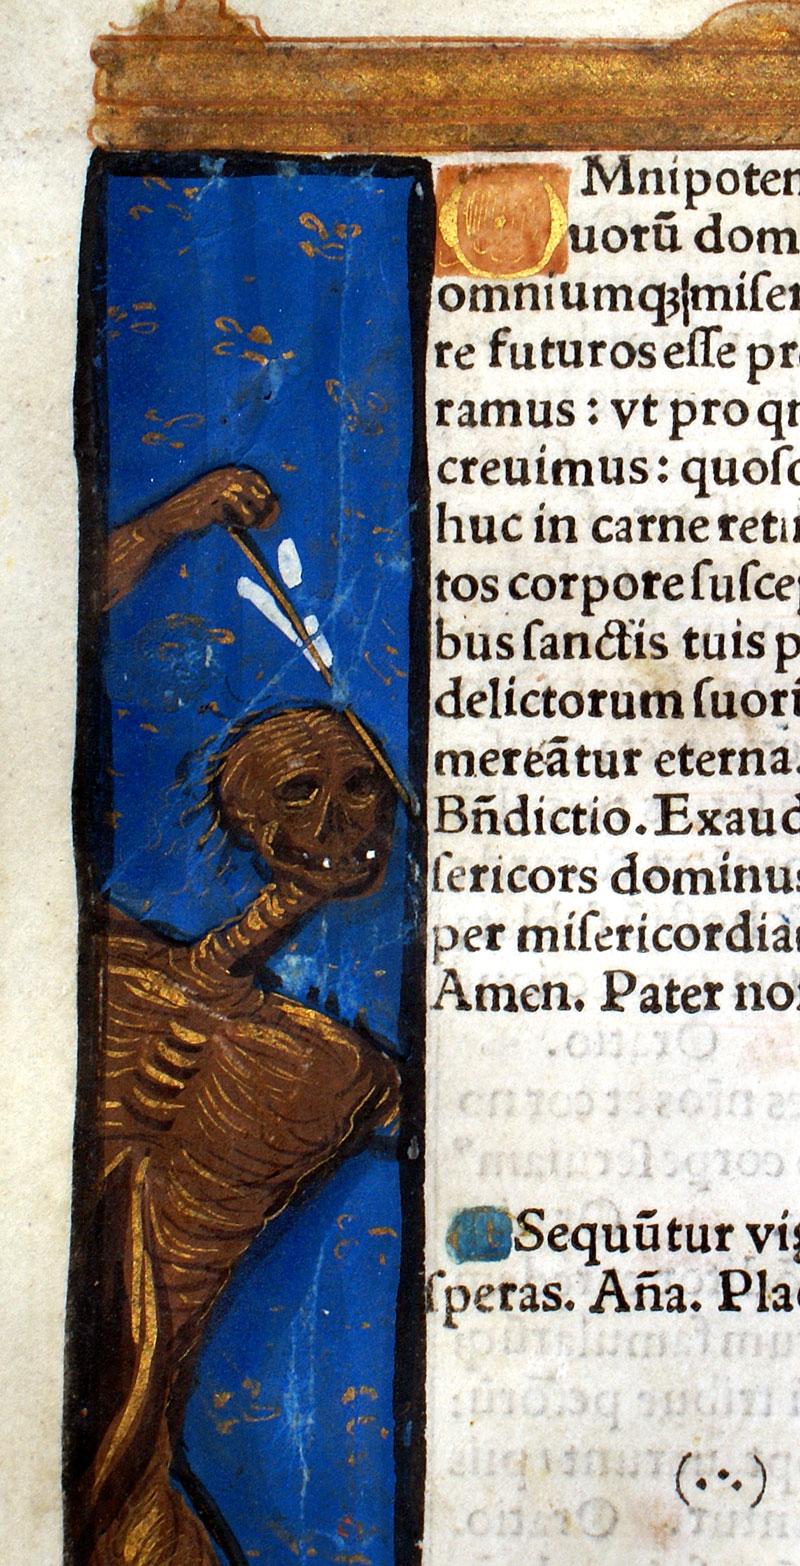 OMnipoten
uorū dom
omniumqꝫ miſer
re futuros eſſe pre
ramus : vt pro q
creuimus : quoſ
huc in carne reti
tos corpore ſuſcep
bus ſanctis tuis p
delictorum ſuorū
mereātur eterna.
Bn̄dictio. Exaud
ſericors dominus
per miſericordia
Amen. Pater no
Sequūtur vig
ſperas. An̄a. Plac